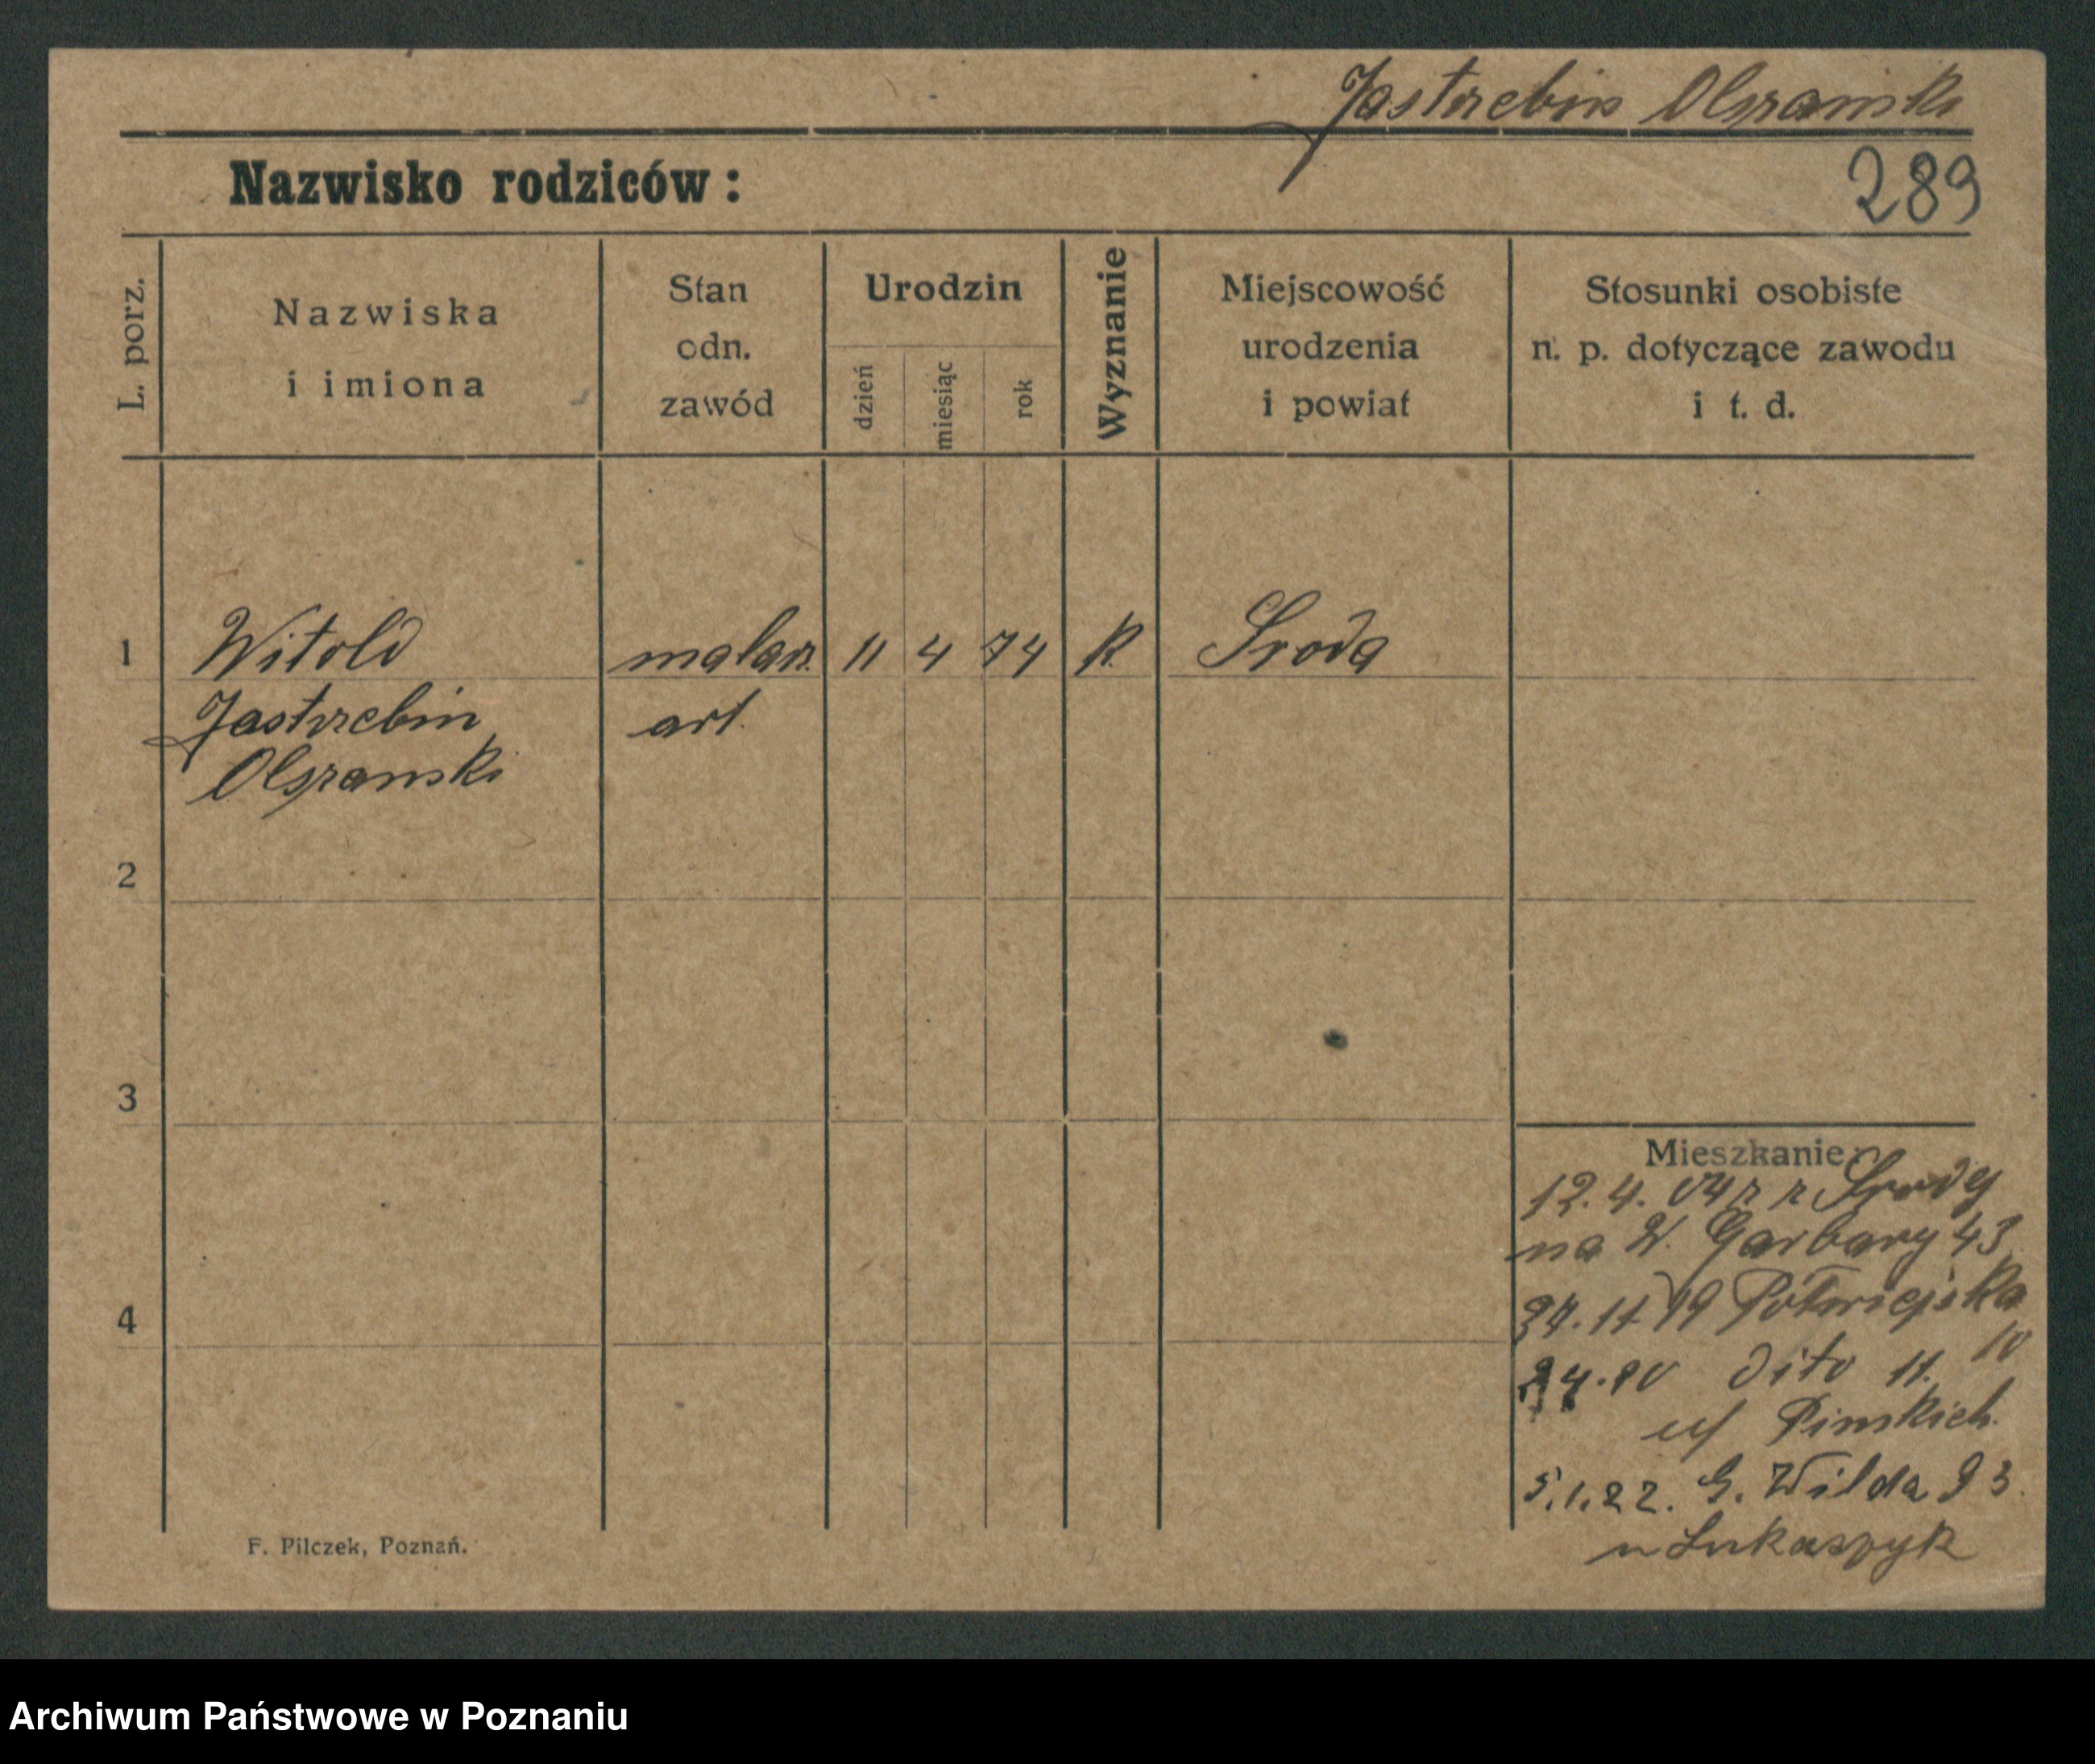 Jastrzebin Olszanski
Nazwisko rodziców:
289
L. porz.
Nazwiska
i imiona
Stan
odn.
zawód
Urodzin
dzień
miesiąc
rok
Wyznanie
Miejscowość
urodzenia
i powiat
Stosunki osobiste
n. p. dotyczące zawodu
i t. d.
1 Witold malarz. 11 4 74 K. Sroda
Jastrzebin art.
Olszanski
2
3
4
Mieszkanie
12. 4. 04 z z Srody
na W. Garbary 43
11 19 Półwiejska
10
4.20 dito 11.
Pinskich
5.1.22. G. Wilda 93.
u Lukaszyk
F. Pilczek, Poznań.
Archiwum Państwowe w Poznaniu